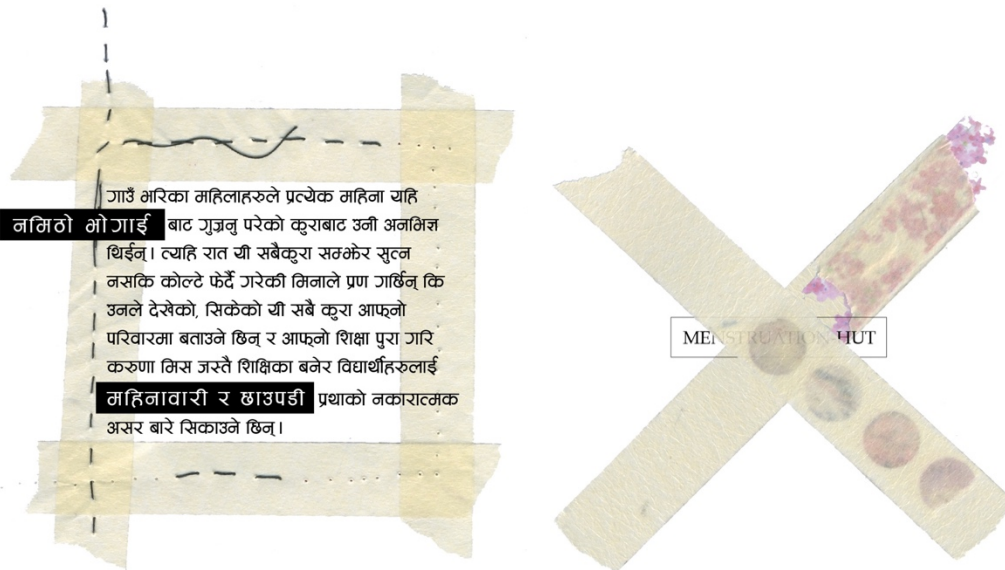 गाउँ भरिका महिलाहरुले प्रत्येक महिना यहि
नमिठो भोगाई बाट गुज्रनु परेको कुराबाट उनी अनभिज्ञ
थिईन् । त्यहि रात यी सबैकुरा सम्झेर सुत्न
नसकि कोल्टे फेर्दै गरेकी मिनाले प्रण गर्छिन् कि
उनले देखेको, सिकेको यी सबै कुरा आफ्नो
परिवारमा बताउने छिन् र आफ्नो शिक्षा पुरा गरि
करुणा मिस जस्तै शिक्षिका बनेर विद्यार्थीहरुलाई
महिनावारी र छाउपडी प्रथाको नकारात्मक
असर बारे सिकाउने छिन् ।
MENSTRUATION HUT